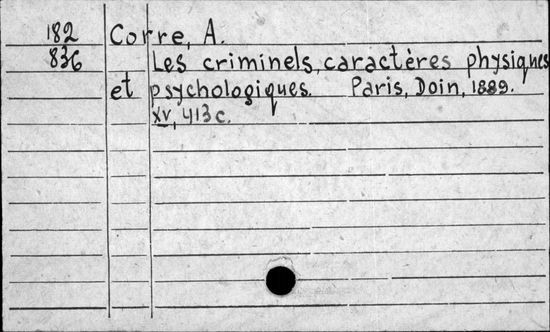 182 Corre, A.
836 Les criminels, caractères physiques
et psychologiques. Paris, Doin, 1889.
XV, 413 c.